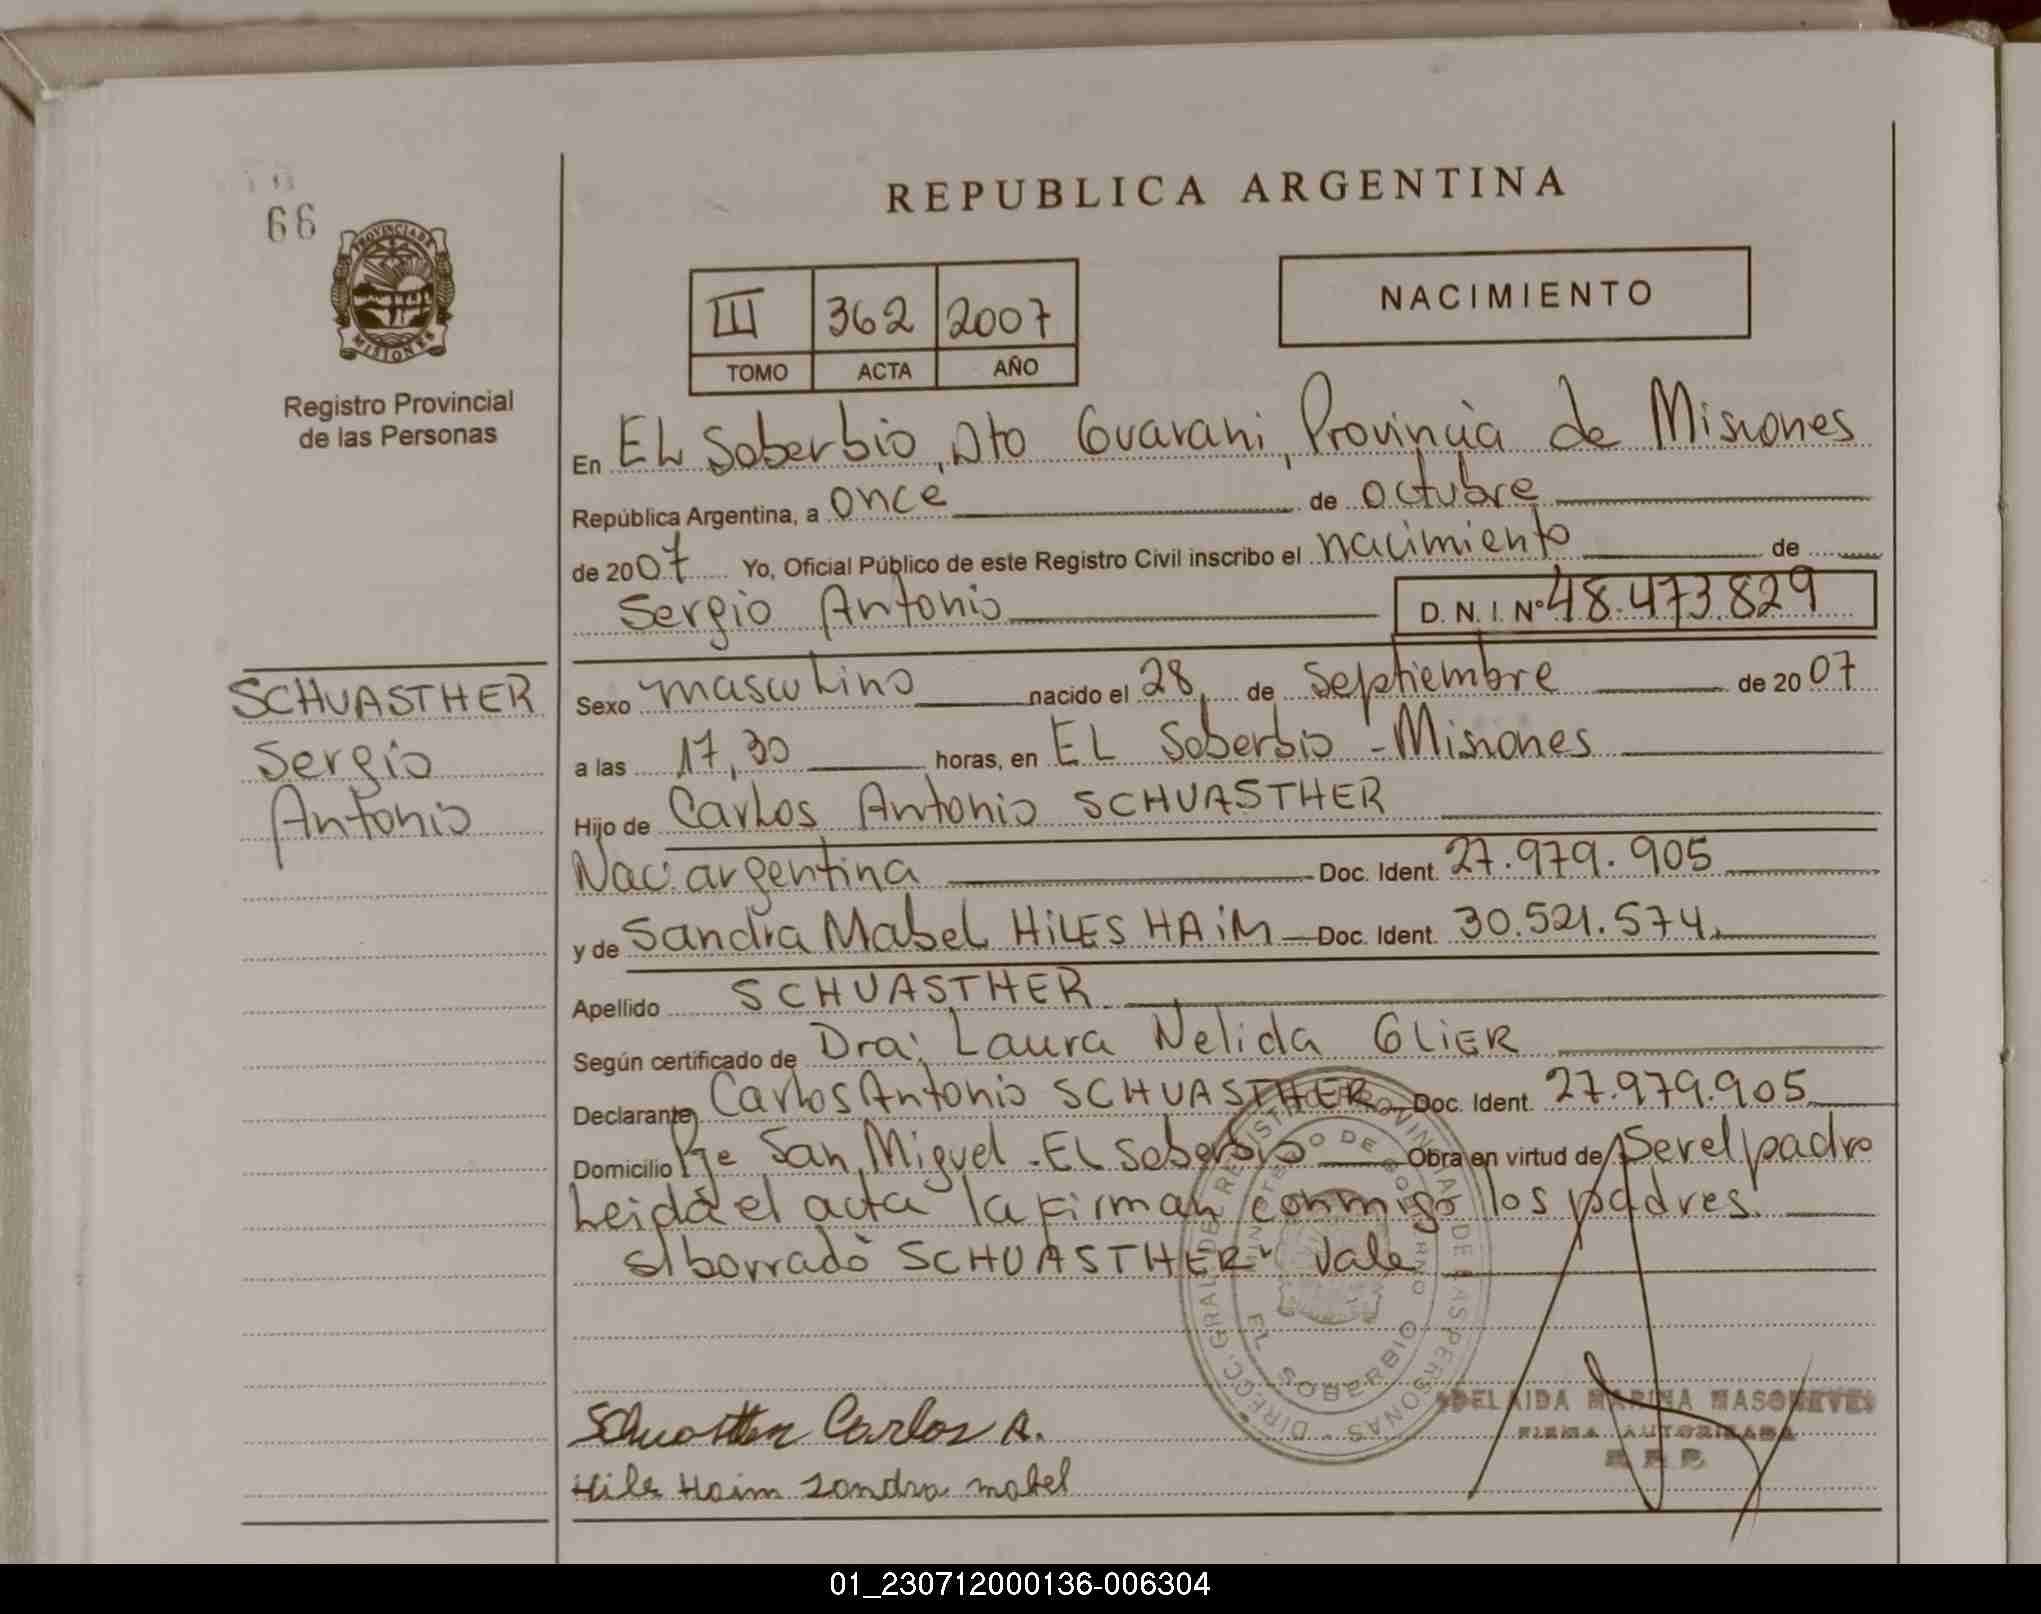 66
PROVINCIA DE
MISIONES
Registro Provincial
de las Personas
REPUBLICA ARGENTINA
III 362 2007
TOMO ACTA AÑO
NACIMIENTO
En EL Soberbio, Dto Guarani, Provincia de Misiones
República Argentina, a once de octubre
de 2007 Yo, Oficial Público de este Registro Civil inscribo el nacimiento de
Sergio Antonio D. N. I. Nº 48.473.829
SCHUASTHER
Sergio
Antonio
Sexo masculino nacido el 28 de Septiembre de 2007
a las 17,30 horas, en EL Soberbio - Misiones
Hijo de Carlos Antonio SCHUASTHER
Nac. argentina Doc. Ident. 27.979.905
y de Sandra Mabel HILES HAIM Doc. Ident. 30.521.574
Apellido SCHUASTHER
Según certificado de Dra: Laura Nelida GLIER
Declarante Carlos Antonio SCHUASTHER Doc. Ident. 27.979.905
Domicilio Pje San Miguel - EL Soberbio Obra en virtud de Ser el padre
Leida el acta la firman conmigo los padres
s/borrado SCHUASTHER Vale
DIRECC. GRAL DEL REGISTRO PROVINCIAL DE LAS PERSONAS
MINISTERIO DE GOBIERNO
EL SOBERBIO
Schuasther Carlos A.
Hiles Haim Sandra mabel
ADELAIDA MARINA
FIRMA AUTORIZADA
01_230712000136-006304